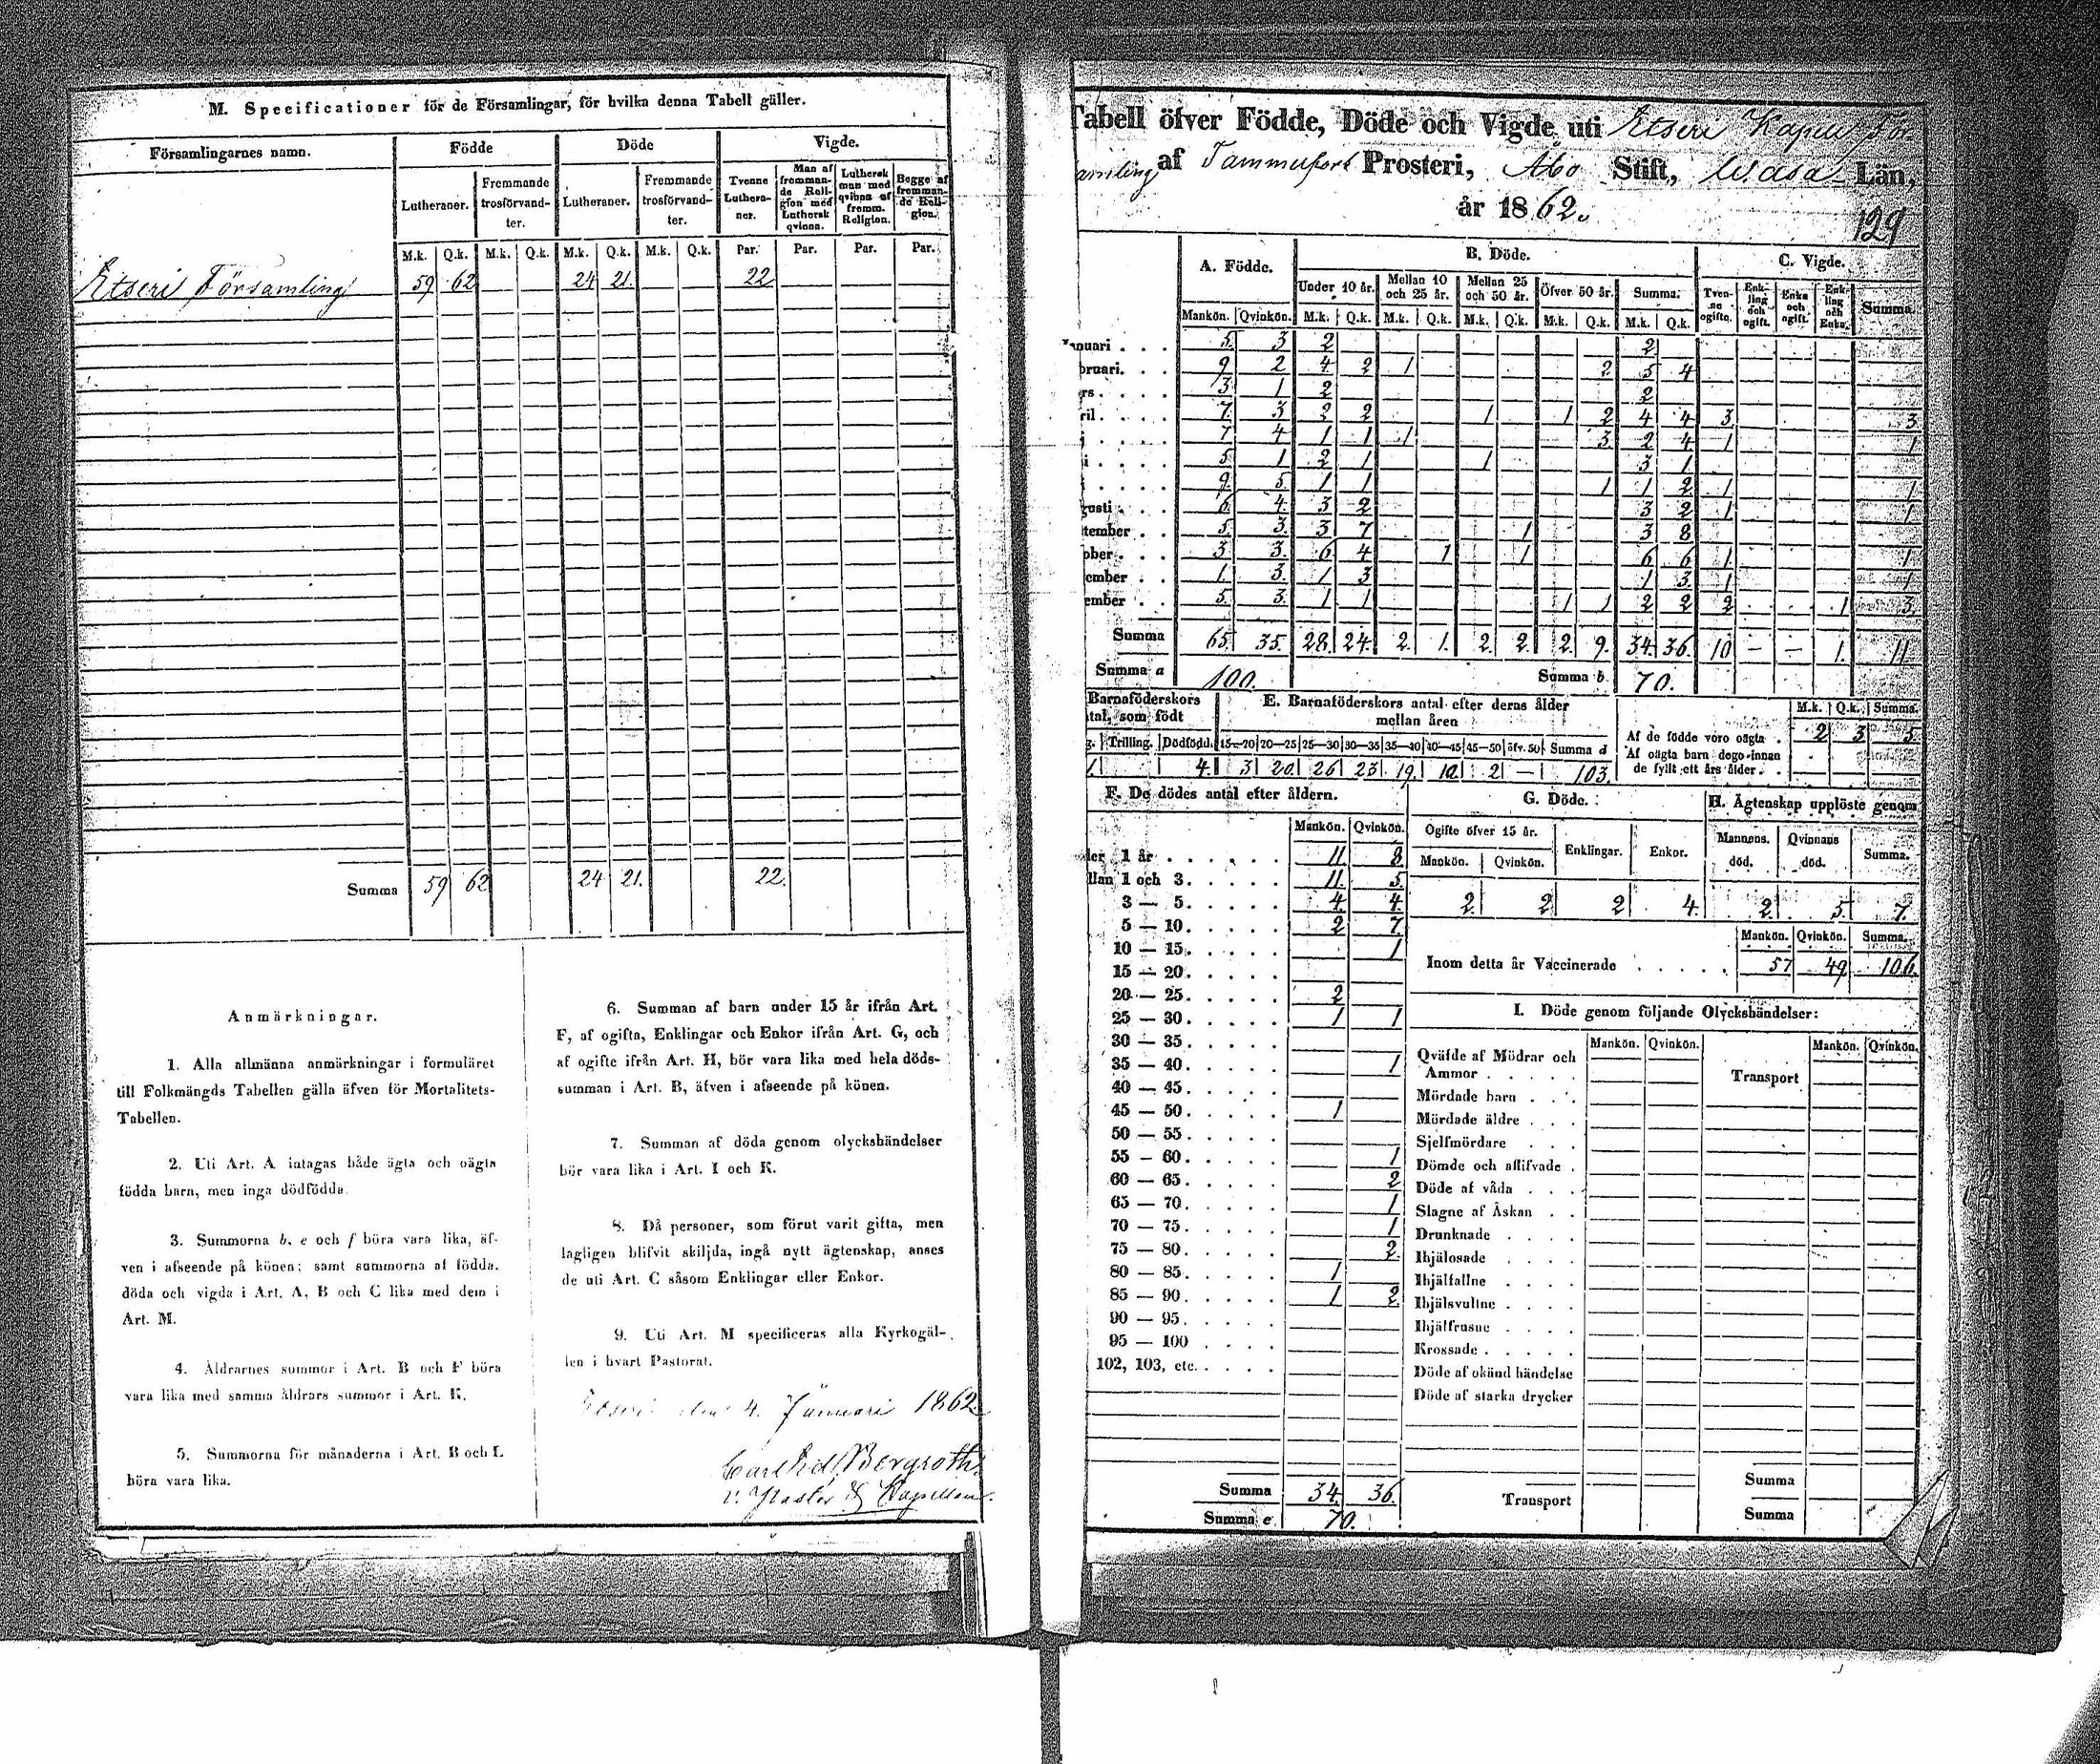 M. Specificationer för de Församlingar, för hvilka denna Tabell gäller.
Församlingarnes namn. Födde Döde Vigde.
Lutheraner. Fremmande trosförvandter. Lutheraner. Fremmande trosförvandter. Tvenne Lutheraner. Man af fremmande Religion med Luthersk qvinna. Luthersk man med qvinna af fremm. Religion. Begge af fremmande Religion.
M.k. Q.k. M.k. Q.k. M.k. Q.k. M.k. Q.k. Par. Par. Par. Par.
Etseri Församling 59 62 24 21. 22
Summa 59 62 24 21. 22.
Anmärkningar.
1. Alla allmänna anmärkningar i formuläret
till Folkmängds Tabellen gälla äfven för Mortalitets-
Tabellen.
2. Uti Art. A intagas både ägta och oägta
födda barn, men inga dödfödda.
3. Summorna b, e och f böra vara lika, äf-
ven i afseende på könen; samt summorna af födda,
döda och vigda i Art. A, B och C lika med dem i
Art. M.
4. Åldrarnes summor i Art. B och F böra
vara lika med samma åldrars summor i Art. K.
5. Summorna för månaderna i Art. B och L
böra vara lika.
6. Summan af barn under 15 år ifrån Art.
F, af ogifta, Enklingar och Enkor ifrån Art. G, och
af ogifte ifrån Art. H, bör vara lika med hela döds-
summan i Art. B, äfven i afseende på könen.
7. Summan af döda genom olyckshändelser
bör vara lika i Art. I och K.
8. Då personer, som förut varit gifta, men
lagligen blifvit skiljda, ingå nytt ägtenskap, anses
de uti Art. C såsom Enklingar eller Enkor.
9. Uti Art. M specificeras alla Kyrkogäl-
len i hvart Pastorat.
Etseri den 4. Januari 1862
Carl Edv. Bergroth.
v. Pastor & Capellan.
Tabell öfver Födde, Döde och Vigde uti Etseri Kapell För
amling af Tammerfors Prosteri, Åbo Stift, Wasa Län,
år 1862.
129
A. Födde. B. Döde. C. Vigde.
Under 10 år. Mellan 10 och 25 år. Mellan 25 och 50 år. Öfver 50 år. Summa. Tvenne ogifta. Enkling och ogift. Enka och ogift. Enkling och Enka. Summa.
Mankön. Qvinkön. M.k. Q.k. M.k. Q.k. M.k. Q.k. M.k. Q.k. M.k. Q.k.
anuari . . . 5. 3 2 2
bruari. . . 9 2 4 2 1 2 5 4
rs . . . . 3 1 2 2
ril . . . . 7. 3 2 2 1 1 2 4 4 3 3
. . . . 7 4 1 1 1 3 2 4 1 1
i . . . . 5 1 2 1 1 3 1
. . . . 9. 5 1 1 1 1 2 1 1
gusti . . . 6 4. 3 2 3 2 1 1
tember . . 5. 3. 3 7 1 3 8
ober . . . 3 3. 6 4 1 1 6 6 1 1
ember . . 1. 3. 1 3 1 3. 1 1
ember . . 5. 3. 1 1 1 1 2 2 2 1 3.
Summa 65. 35. 28. 24. 2. 1. 2. 2. 2. 9. 34. 36. 10 — — 1. 11.
Summa a 100. Summa b. 70.
Barnaföderskors
tal, som födt
g. Trilling. Dödfödd.
1. 4.
E. Barnaföderskors antal efter deras ålder
mellan åren
15—20 20—25 25—30 30—35 35—40 40—45 45—50 öfv. 50 Summa d
3 20. 26 23. 19. 10. 2 — 103.
M.k. Q.k. Summa.
Af de födde voro oägta . 2 3 5.
Af oägta barn dogo innan
de fyllt ett års ålder . .
F. De dödes antal efter åldern.
Mankön. Qvinkön.
der 1 år . . . . . . 11. 8.
llan 1 och 3. . . . . 11. 5.
3 — 5. . . . . 4. 4.
5 — 10. . . . . 2 7.
10 — 15. . . . . 1
15 — 20. . . . .
20 — 25. . . . . 2
25 — 30. . . . . 1 1
30 — 35. . . . .
35 — 40. . . . . 1
40 — 45. . . . .
45 — 50. . . . . 1
50 — 55. . . . .
55 — 60. . . . . 1
60 — 65. . . . . 2
65 — 70. . . . . 1
70 — 75. . . . . 1
75 — 80. . . . . 2.
80 — 85. . . . . 1
85 — 90. . . . . 1 2
90 — 95. . . . .
95 — 100 . . . .
102, 103, etc. . . . .
Summa 34. 36.
Summa e 70.
G. Döde.
Ogifte öfver 15 år. Enklingar. Enkor.
Mankön. Qvinkön.
2. 2 2 4.
H. Ägtenskap upplöste genom
Mannens död. Qvinnans död. Summa.
2. 5. 7.
Mankön. Qvinkön. Summa.
Inom detta år Vaccinerade . . . . . 57 49 106.
I. Döde genom följande Olyckshändelser:
Mankön. Qvinkön. Mankön. Qvinkön.
Qväfde af Mödrar och
Ammor . . . . . Transport
Mördade barn . . .
Mördade äldre . . .
Sjelfmördare . . .
Dömde och aflifvade .
Döde af våda . . .
Slagne af Åskan . .
Drunknade . . . .
Ihjälosade . . . .
Ihjälfallne . . . .
Ihjälsvultne . . . .
Ihjälfrusne . . . .
Krossade . . . . .
Döde af okänd händelse
Döde af starka drycker
Summa
Transport
Summa